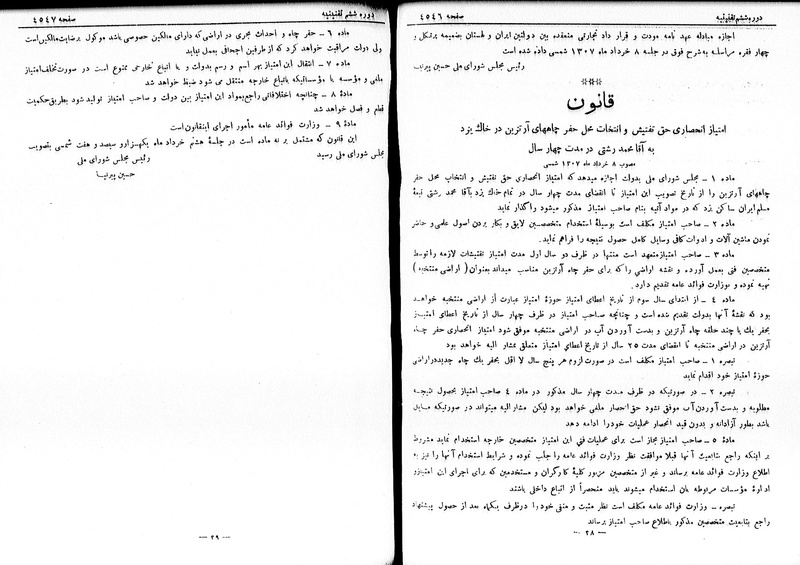 دوره ششم تقنینیه
صفحه ۴۵۴۶
اجازه مبادله عهد نامه مودت و قرار داد تجارتی منعقده بین دولتین ایران و لهستان بضمیمه پرتکل و
چهار فقره مراسله به شرح فوق در جلسه ۸ خرداد ماه ۱۳۰۷ شمسی داده شده است
رئیس مجلس شورای ملی حسین پیرنیا
***
قانون
امتیاز انحصاری حق تفتیش و انتخاب محل حفر چاههای آرتزین در خاك یزد
به آقا محمد رشتی در مدت چهار سال
مصوب ۸ خرداد ماه ۱۳۰۷ شمسی
ماده ۱ – مجلس شورای ملی بدولت اجازه میدهد که امتیاز انحصاری حق تفتیش و انتخاب محل حفر
چاههای آرتزین را از تاریخ تصویب این امتیاز تا انقضای مدت چهار سال در تمام خاك یزد بآقا محمد رشتی تبعهٔ
مسلم ایران ساکن یزد که در مواد آتیه بنام صاحب امتیاز مذکور میشود واگذار نماید
ماده ۲ – صاحب امتیاز مکلف است بوسیلهٔ استخدام متخصصین لایق و بکار بردن اصول علمی و حاضر
نمودن ماشین آلات و ادوات کافی وسایل کامل حصول نتیجه را فراهم نماید.
ماده ۳ – صاحب امتیاز متعهد است منتها در ظرف دو سال اول مدت امتیاز تفتیشات لازمه را توسط
متخصصین فنی بعمل آورده و نقشه اراضی را که برای حفر چاه آرتزین مناسب میداند بعنوان ( اراضی منتخبه )
تهیه نموده و بوزارت فوائد عامه تقدیم دارد.
ماده ۴ – از ابتدای سال سوم از تاریخ اعطای امتیاز حوزهٔ امتیاز عبارت از اراضی منتخبه خواهد
بود که نقشهٔ آنها بدولت تقدیم شده است و چنانچه صاحب امتیاز در ظرف چهار سال از تاریخ اعطای امتیاز
بحفر یك یا چند حلقه چاه آرتزین و بدست آوردن آب در اراضی منتخبه موفق شود امتیاز انحصاری حفر چاه
آرتزین در اراضی منتخبه تا انقضای مدت ۲۵ سال از تاریخ اعطای امتیاز متعلق بمشار الیه خواهد بود
تبصره ۱ – صاحب امتیاز مکلف است در صورت لزوم هر پنج سال لا اقل بحفر یك چاه جدید در اراضی
حوزهٔ امتیاز خود اقدام نماید
تبصره ۲ – در صورتیکه در ظرف مدت چهار سال مذکور در ماده ۴ صاحب امتیاز بحصول نتیجه
مطلوبه و بدست آوردن آب موفق نشود حق انحصار ملغی خواهد بود لیکن مشار الیه میتواند در صورتیکه مایل
باشد بطور آزادانه و بدون قید انحصار عملیات خود را ادامه دهد
ماده ۵ – صاحب امتیاز مجاز است برای عملیات فنی این امتیاز متخصصین خارجه استخدام نماید مشروط
بر اینکه راجع بتابعیت آنها قبلا موافقت نظر وزارت فوائد عامه را جلب نموده و شرایط استخدام آنها را نیز به
اطلاع وزارت فوائد عامه برساند و غیر از متخصصین مزبور کلیهٔ کارگران و مستخدمین که برای اجرای این امتیاز و
ادارهٔ مؤسسات مربوطه بآن استخدام میشوند باید منحصراً از اتباع داخلی باشند
تبصره – وزارت فوائد عامه مکلف است نظر مثبت و منفی خود را در ظرف یکماه بعد از حصول پیشنهاد
راجع بتابعیت متخصصین مذکور باطلاع صاحب امتیاز برساند
– ۲۸ –
دوره ششم تقنینیه
صفحه ۴۵۴۷
ماده ۶ – حفر چاه و احداث مجری در اراضی که دارای مالکین خصوصی باشد موکول برضایت مالکین است
ولی دولت مراقبت خواهد کرد که از طرفین اجحافی بعمل نیاید
ماده ۷ – انتقال این امتیاز بهر اسم و رسم بدولت و یا اتباع خارجی ممنوع است در صورت تخلف امتیاز
ملغی و مؤسسه یا مؤسساتیکه باتباع خارجه منتقل می شود ضبط خواهد شد
ماده ۸ – چنانچه اختلافاتی راجع بمواد این امتیاز بین دولت و صاحب امتیاز تولید شود بطریق حکمیت
قطع و فصل خواهد شد
مادهٔ ۹ – وزارت فوائد عامه مأمور اجرای اینقانون است
این قانون که مشتمل بر نه ماده است در جلسهٔ هشتم خرداد ماه یکهزار و سیصد و هفت شمسی بتصویب
مجلس شورای ملی رسید
رئیس مجلس شورای ملی
حسین پیرنیا
– ۲۹ –